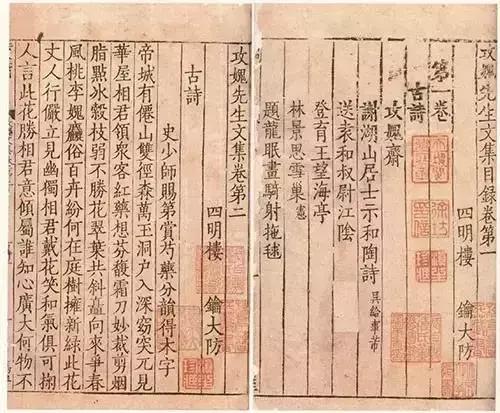 攻媿先生文集目錄卷第一
四明樓 鑰大防
第一卷
古詩
攻媿齋
謝湖山居士示和陶詩 吳給事芾
送袁和叔尉江陰
登育王望海亭
林景思雪巢 憲
題龍眠畫騎射抱毬
攻媿先生文集卷第二
四明樓 鑰大防
古詩
史少師賜第賞芍藥分韻得木字
帝城有僊山雙徑森萬玉洞户入深窈突兀見
華屋相君領衆客紅藥想芬馥霜刀妙裁剪姻
脂點冰縠枝弱不勝花翠葉共斜矗向來爭春
風桃李媿麤俗百卉紛何在庭樹擁新綠此花
丈人行儼立見幽獨相君戴花笑和氣俱可掬
人言此花勝相君意傾屬誰知心廣大何物不